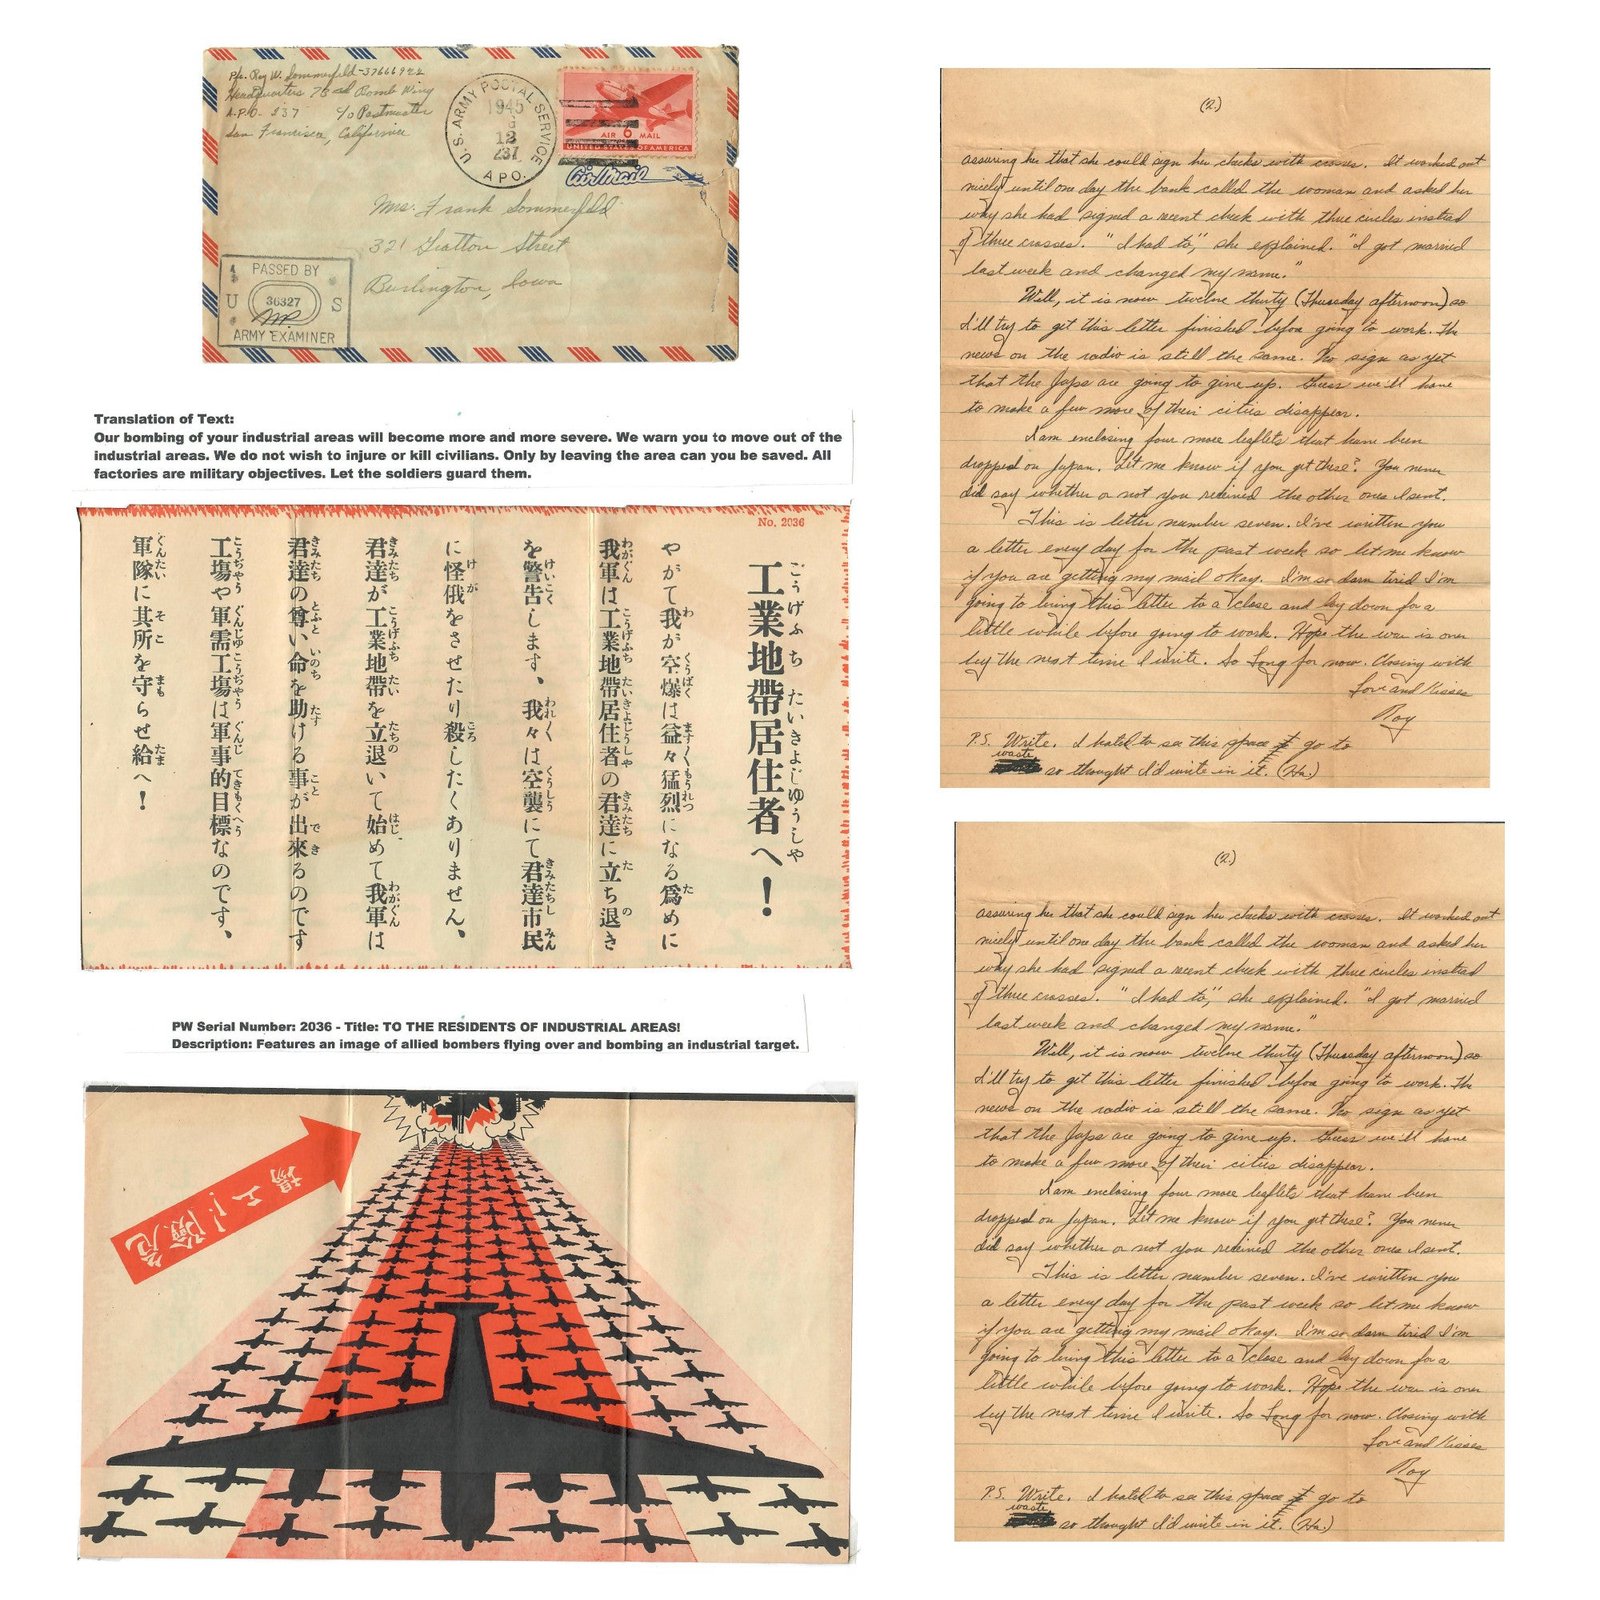 Pfc. Roy W. Sommerfeld-37666922
Headquarters 73rd Bomb Wing
A.P.O. 237 c/o Postmaster
San Francisco, California
U.S. ARMY POSTAL SERVICE
1945
12
237
A.P.O.
AIR 6 MAIL
UNITED STATES OF AMERICA
Air Mail
Mrs. Frank Sommerfeld
321 Gratton Street
Burlington, Iowa
PASSED BY
U 36327 S
ARMY EXAMINER
Translation of Text:
Our bombing of your industrial areas will become more and more severe. We warn you to move out of the
industrial areas. We do not wish to injure or kill civilians. Only by leaving the area can you be saved. All
factories are military objectives. Let the soldiers guard them.
No. 2036
工業地帶居住者へ!
やがて我が空爆は益々猛烈になる爲めに
我軍は工業地帶居住者の君達に立ち退き
を警告します、我々は空襲にて君達市民
に怪俄をさせたり殺したくありません、
君達が工業地帶を立退いて始めて我軍は
君達の尊い命を助ける事が出來るのです
工場や軍需工場は軍事的目標なのです、
軍隊に其所を守らせ給へ!
PW Serial Number: 2036 - Title: TO THE RESIDENTS OF INDUSTRIAL AREAS!
Description: Features an image of allied bombers flying over and bombing an industrial target.
危險!!工場
(2.)
assuring her that she could sign her checks with crosses. It worked out
nicely until one day the bank called the woman and asked her
why she had signed a recent check with three circles instead
of three crosses. "I had to," she explained. "I got married
last week and changed my name."
Well, it is now twelve thirty (Thursday afternoon) so
I'll try to get this letter finished before going to work. The
news on the radio is still the same. No sign as yet
that the Japs are going to give up. Guess we'll have
to make a few more of their cities disappear.
I am enclosing four more leaflets that have been
dropped on Japan. Let me know if you get these? You never
did say whether or not you received the other ones I sent.
This is letter number seven. I've written you
a letter every day for the past week so let me know
if you are getting my mail okay. I'm so darn tired I'm
going to bring this letter to a close and lay down for a
little while before going to work. Hope the war is over
by the next time I write. So Long for now. Closing with
Love and Kisses
Roy
P.S. Write. I hated to see this space go to
waste
so thought I'd write in it. (Ha.)
(2.)
assuring her that she could sign her checks with crosses. It worked out
nicely until one day the bank called the woman and asked her
why she had signed a recent check with three circles instead
of three crosses. "I had to," she explained. "I got married
last week and changed my name."
Well, it is now twelve thirty (Thursday afternoon) so
I'll try to get this letter finished before going to work. The
news on the radio is still the same. No sign as yet
that the Japs are going to give up. Guess we'll have
to make a few more of their cities disappear.
I am enclosing four more leaflets that have been
dropped on Japan. Let me know if you get these? You never
did say whether or not you received the other ones I sent.
This is letter number seven. I've written you
a letter every day for the past week so let me know
if you are getting my mail okay. I'm so darn tired I'm
going to bring this letter to a close and lay down for a
little while before going to work. Hope the war is over
by the next time I write. So Long for now. Closing with
Love and Kisses
Roy
P.S. Write. I hated to see this space go to
waste
so thought I'd write in it. (Ha.)